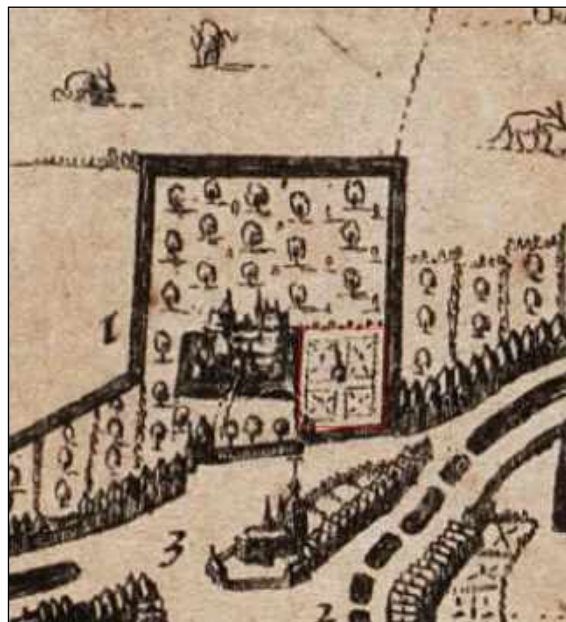 1
3
2